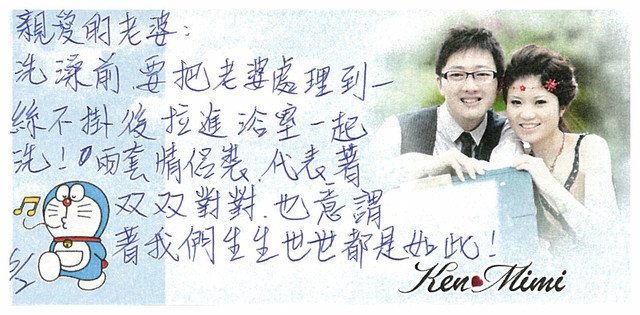 親愛的老婆：
洗澡前要把老婆處理到一
絲不掛後拉進浴室一起
洗！兩套情侶裝，代表著
双双對對，也意謂
著我們生生世世都是如此！
Ken Mimi